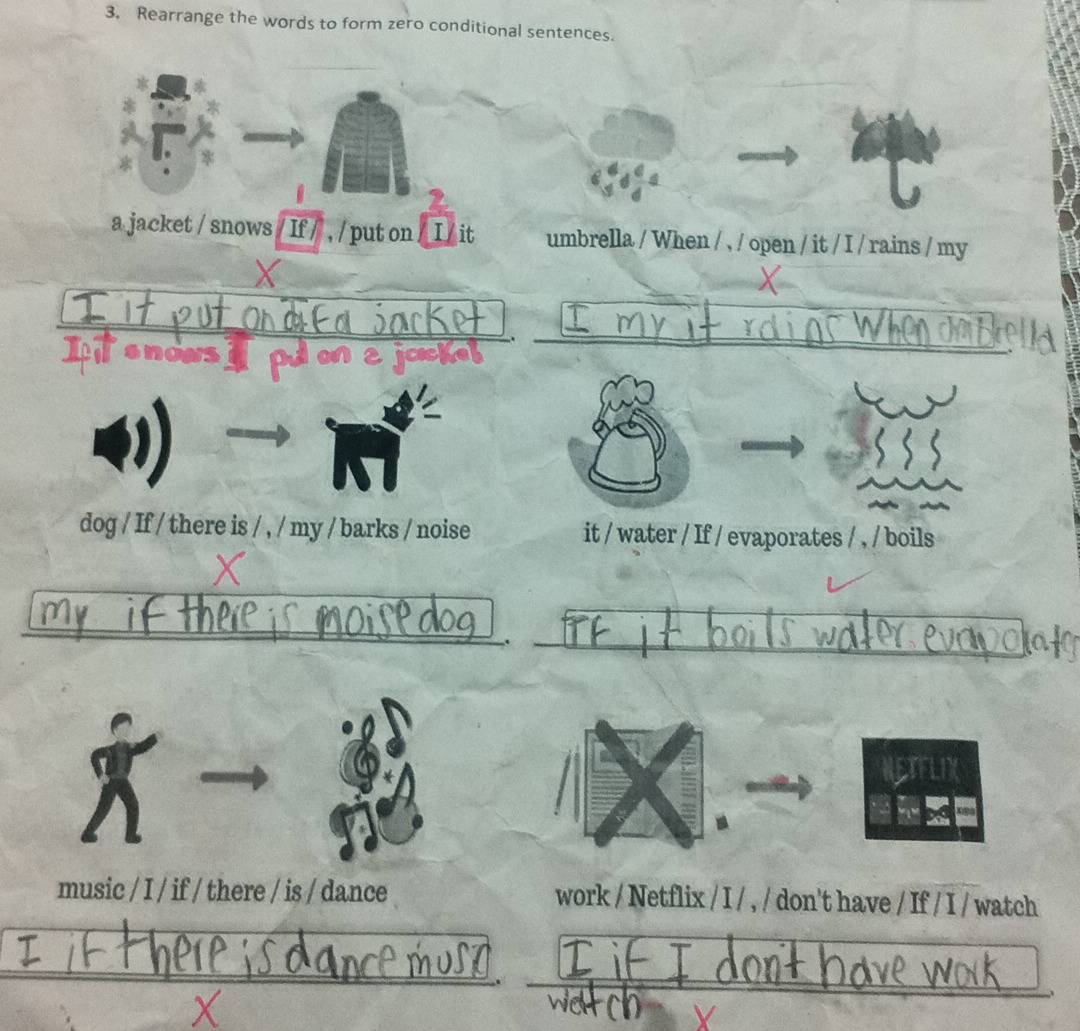 3. Rearrange the words to form zero conditional sentences.
1
2
a jacket / snows / If / , / put on / I / it
umbrella / When / , / open / it / I / rains / my
X
X
I it put on a jacket
I my it rains When ombrella
If it snows I put on a jacket
dog / If / there is / , / my / barks / noise
it / water / If / evaporates / , / boils
X
✓
my if there is moise dog
If it boils water evaporats
NETFLIX
music / I / if / there / is / dance
work / Netflix / I / , / don't have / If / I / watch
I if there is dance
I if I don't have work
watch
X
X